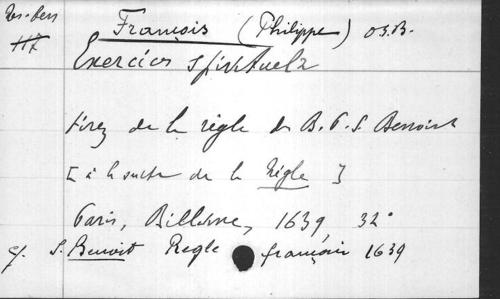 Res. Bers
117
François (Philippe) O.S.B.
Exercices spirituelz
tirez de la règle de B. P. S. Benoist
[à la suite de la Règle]
Paris, Billaine, 1639, 32°
cf. S. Benoit Regle français 1639